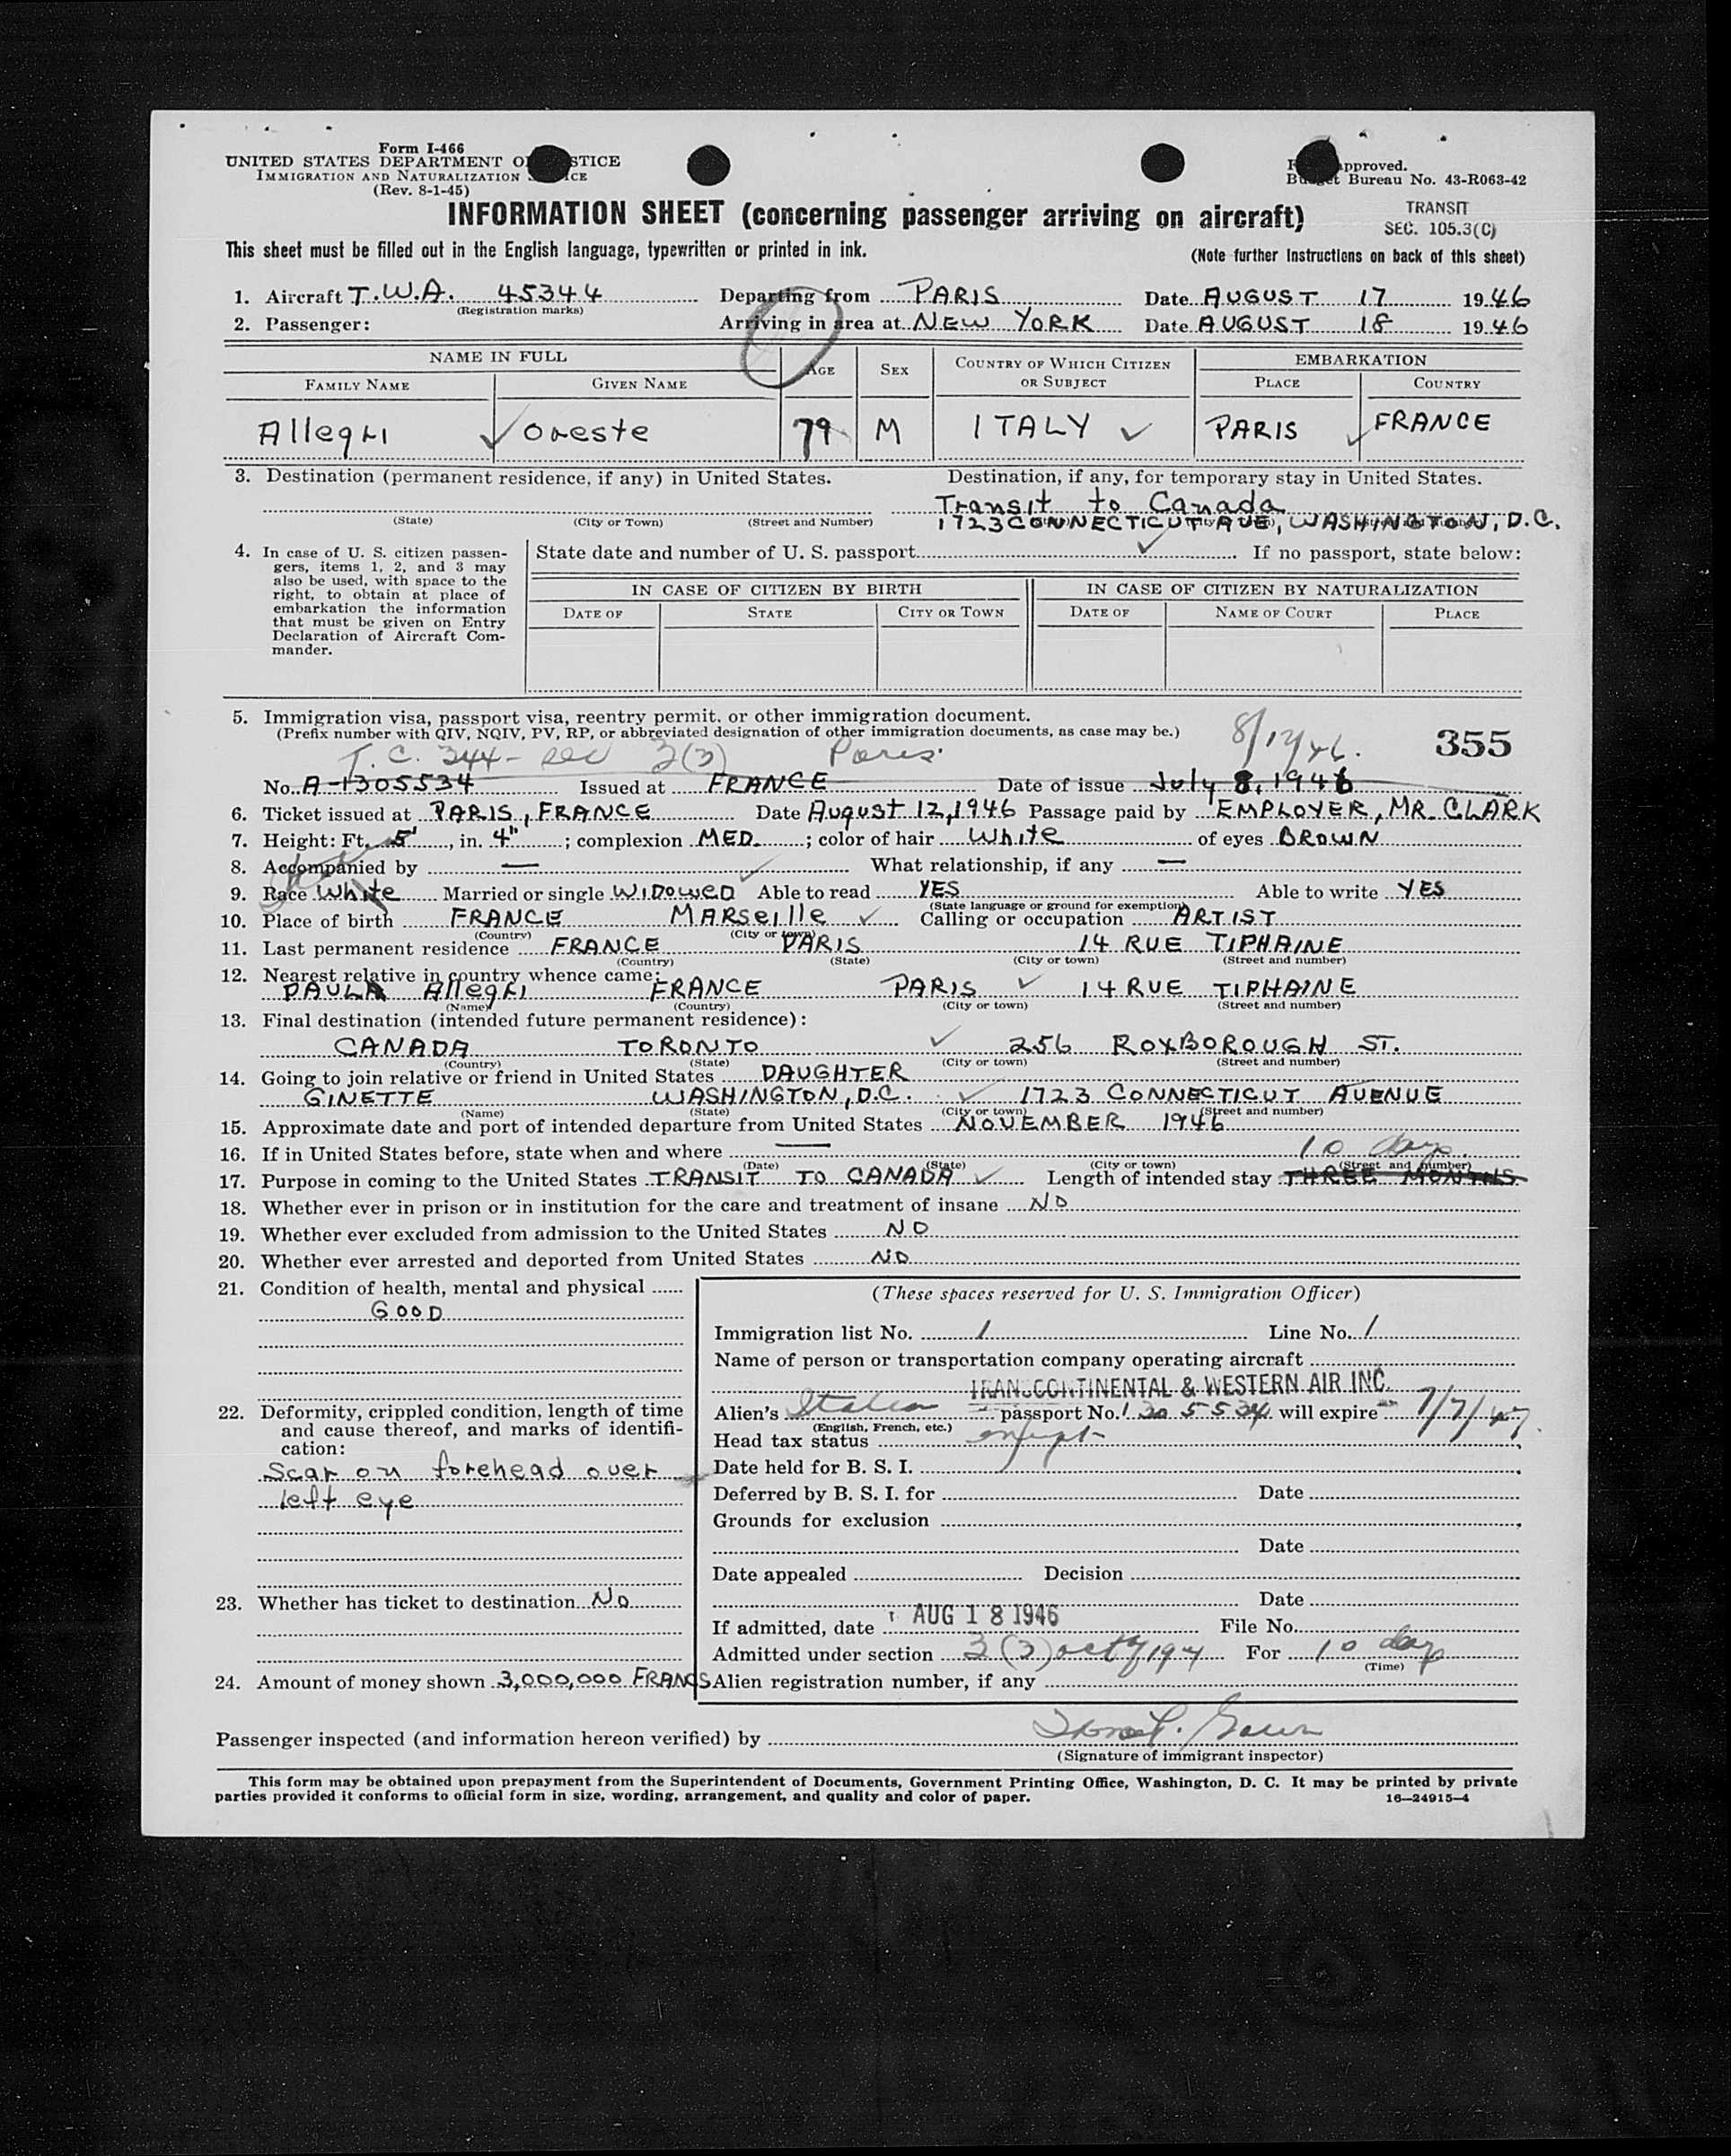 Form I-466
UNITED STATES DEPARTMENT O STICE
IMMIGRATION AND NATURALIZATION ICE
(Rev. 8-1-45)
pproved.
Bu et Bureau No. 43-R063-42
INFORMATION SHEET (concerning passenger arriving on aircraft)
TRANSIT
SEC. 105.3(C)
This sheet must be filled out in the English language, typewritten or printed in ink.
(Note further Instructions on back of this sheet)
1. Aircraft T.W.A. 45344 Departing from PARIS Date AUGUST 17 1946
(Registration marks)
2. Passenger: Arriving in area at NEW YORK Date AUGUST 18 1946
NAME IN FULL AGE SEX COUNTRY OF WHICH CITIZEN OR SUBJECT EMBARKATION
FAMILY NAME GIVEN NAME PLACE COUNTRY
Allegri Oreste 79 M ITALY PARIS FRANCE
3. Destination (permanent residence, if any) in United States. Destination, if any, for temporary stay in United States.
Transit to Canada
1723 CONNECTICUT AVE, WASHINGTON, D.C.
(State) (City or Town) (Street and Number)
4. In case of U. S. citizen passen-
gers, items 1, 2, and 3 may
also be used, with space to the
right, to obtain at place of
embarkation the information
that must be given on Entry
Declaration of Aircraft Com-
mander.
State date and number of U. S. passport If no passport, state below:
IN CASE OF CITIZEN BY BIRTH IN CASE OF CITIZEN BY NATURALIZATION
DATE OF STATE CITY OR TOWN DATE OF NAME OF COURT PLACE
5. Immigration visa, passport visa, reentry permit, or other immigration document.
(Prefix number with QIV, NQIV, PV, RP, or abbreviated designation of other immigration documents, as case may be.)
355
T. C. 344 - sec 3(3) Paris 8/12/46.
No. A-1305534 Issued at FRANCE Date of issue July 8, 1946
6. Ticket issued at PARIS, FRANCE Date August 12, 1946 Passage paid by EMPLOYER, MR. CLARK
7. Height: Ft. 5', in. 4"; complexion MED.; color of hair White of eyes BROWN
8. Accompanied by — What relationship, if any —
9. Race White Married or single WIDOWED Able to read YES Able to write YES
(State language or ground for exemption)
10. Place of birth FRANCE MARSEILLE Calling or occupation ARTIST
(Country) (City or town)
11. Last permanent residence FRANCE PARIS 14 RUE TIPHAINE
(Country) (State) (City or town) (Street and number)
12. Nearest relative in country whence came:
PAULA Allegri FRANCE PARIS 14 RUE TIPHAINE
(Name) (Country) (City or town) (Street and number)
13. Final destination (intended future permanent residence):
CANADA TORONTO 256 ROXBOROUGH ST.
(Country) (State) (City or town) (Street and number)
14. Going to join relative or friend in United States DAUGHTER
GINETTE WASHINGTON, D.C. 1723 CONNECTICUT AVENUE
(Name) (State) (City or town) (Street and number)
15. Approximate date and port of intended departure from United States NOVEMBER 1946
16. If in United States before, state when and where —
(Date) (State) (City or town) (Street and number)
10 days.
17. Purpose in coming to the United States TRANSIT TO CANADA Length of intended stay THREE MONTHS
18. Whether ever in prison or in institution for the care and treatment of insane NO
19. Whether ever excluded from admission to the United States NO
20. Whether ever arrested and deported from United States NO
21. Condition of health, mental and physical
GOOD
22. Deformity, crippled condition, length of time
and cause thereof, and marks of identifi-
cation:
Scar on forehead over
left eye
23. Whether has ticket to destination No
24. Amount of money shown 3,000,000 FRANCS
(These spaces reserved for U. S. Immigration Officer)
Immigration list No. 1 Line No. 1
Name of person or transportation company operating aircraft
TRANSCONTINENTAL & WESTERN AIR INC.
Alien's Italian passport No. 1305534 will expire 7/7/47.
(English, French, etc.)
Head tax status exempt
Date held for B. S. I.
Deferred by B. S. I. for Date
Grounds for exclusion
Date
Date appealed Decision
Date
If admitted, date AUG 18 1946 File No.
Admitted under section 3(3) act of 1924 For 10 days
(Time)
Alien registration number, if any
Passenger inspected (and information hereon verified) by
(Signature of immigrant inspector)
This form may be obtained upon prepayment from the Superintendent of Documents, Government Printing Office, Washington, D. C. It may be printed by private
parties provided it conforms to official form in size, wording, arrangement, and quality and color of paper.
16—24915-4